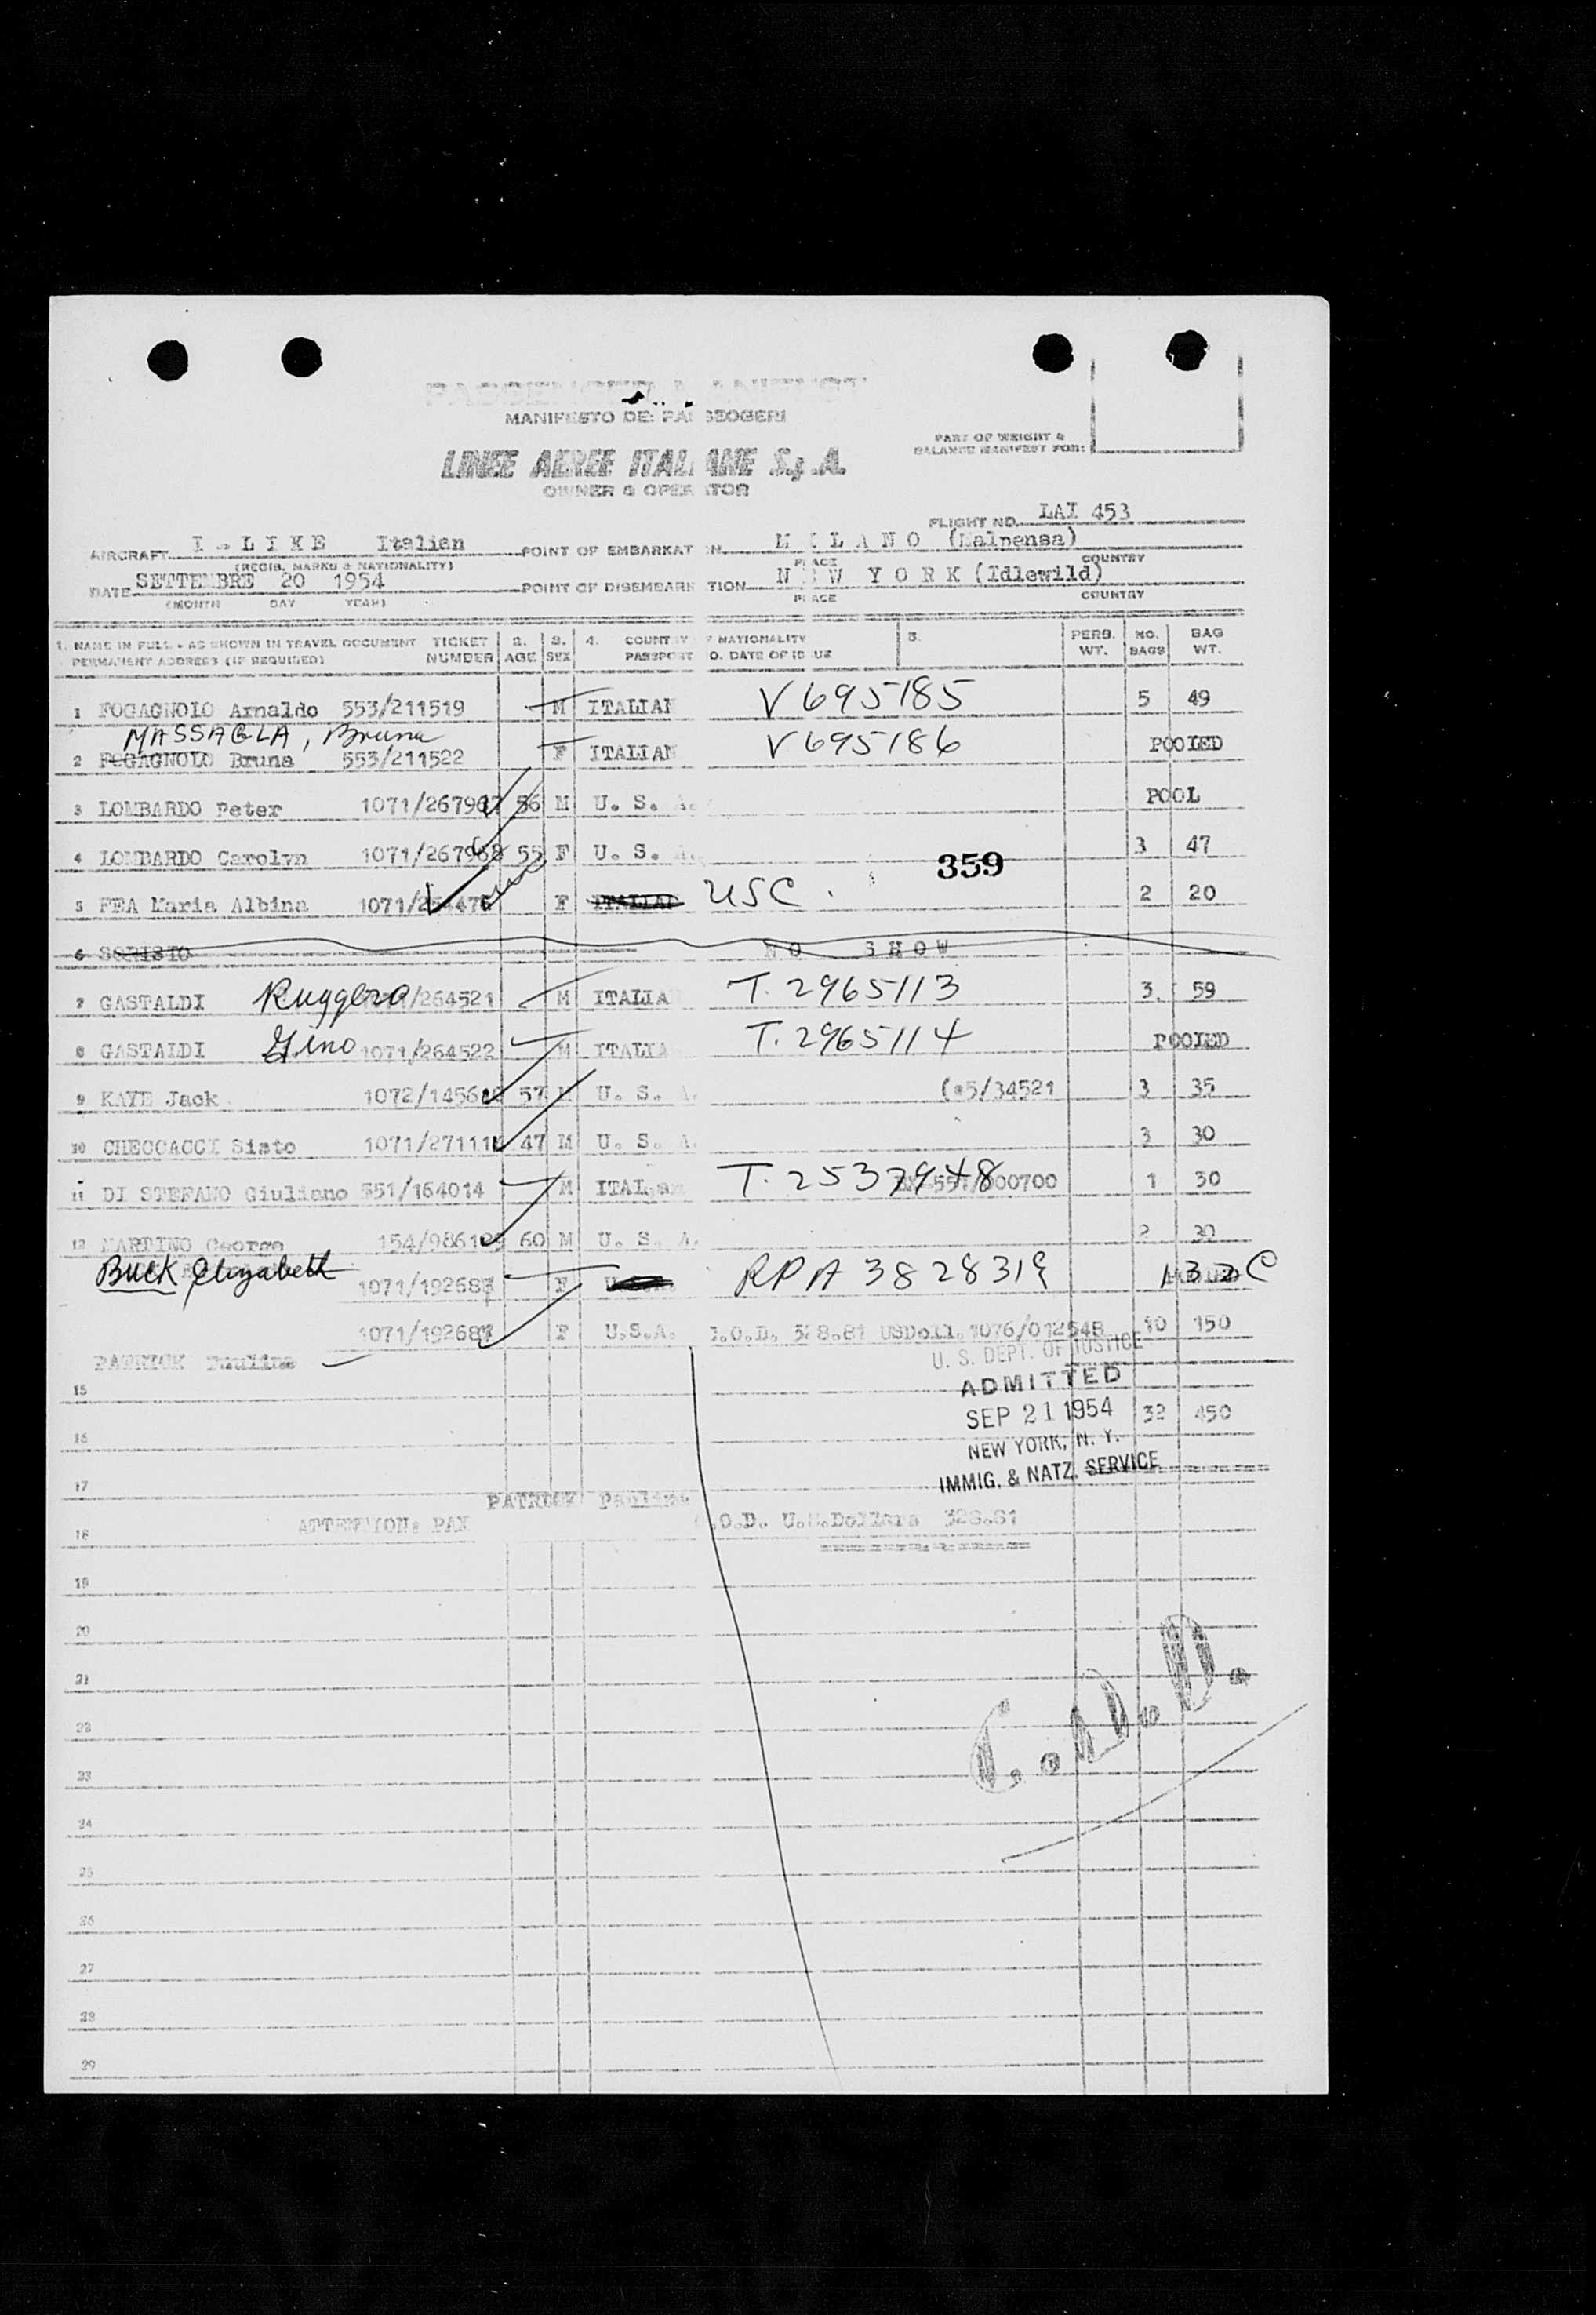 MANIFESTO DEI PASSEGGERI
PART OF WEIGHT &
BALANCE MANIFEST FOR:
LINEE AEREE ITALIANE S.p.A.
OWNER & OPERATOR
FLIGHT NO. LAI 453
AIRCRAFT I-LIKE Italian POINT OF EMBARKATION MILANO (Malpensa)
(REGIS. MARKS & NATIONALITY) PLACE COUNTRY
DATE SETTEMBRE 20 1954 POINT OF DISEMBARKATION NEW YORK (Idlewild)
(MONTH DAY YEAR) PLACE COUNTRY
1. NAME IN FULL - AS SHOWN IN TRAVEL DOCUMENT TICKET 2. 3. 4. COUNTRY OF NATIONALITY 5. PERS. NO. BAG
PERMANENT ADDRESS (IF REQUIRED) NUMBER AGE SEX PASSPORT NO. DATE OF ISSUE WT. BAGS WT.
1 FOGAGNOLO Arnaldo 553/211519 M ITALIAN V695185 5 49
MASSAGLA, Bruna
2 FOGAGNOLO Bruna 553/211522 F ITALIAN V695186 POOLED
3 LOMBARDO Peter 1071/267967 56 M U. S. A. POOL
4 LOMBARDO Carolyn 1071/267968 55 F U. S. A. 359 3 47
5 FEA Maria Albina 1071/ F ITALIAN USC. 2 20
6 SORISIO NO SHOW
7 GASTALDI Ruggero /264521 M ITALIA T. 2965113 3. 59
8 GASTALDI Gino 1071/264522 M ITALIA T. 2965114 POOLED
9 KAYE Jack 1072/ 57 M U. S. A. 5/34521 3 35
10 CHECCACCI Sisto 1071/ 47 M U. S. A. 3 30
11 DI STEFANO Giuliano 551/164014 M ITALIAN T. 2537948 1 30
12 MARTINO George 154/ 60 M U. S. A. 2 30
BUCK Elizabeth 1071/192683 F RPA
1071/192687 F U.S.A. C.O.D. 328.81 USDoll. 1076/01254B 10 150
PATRICK Pauline
U. S. DEPT. OF JUSTICE
15 ADMITTED
SEP 21 1954 32 450
16 NEW YORK, N. Y.
17 IMMIG. & NATZ. SERVICE
PATRICK Pauline
18 ATTENTION: PAX C.O.D. U.S.Dollars 328.81
19
20
21
22
C.O.D.
23
24
25
26
27
28
29